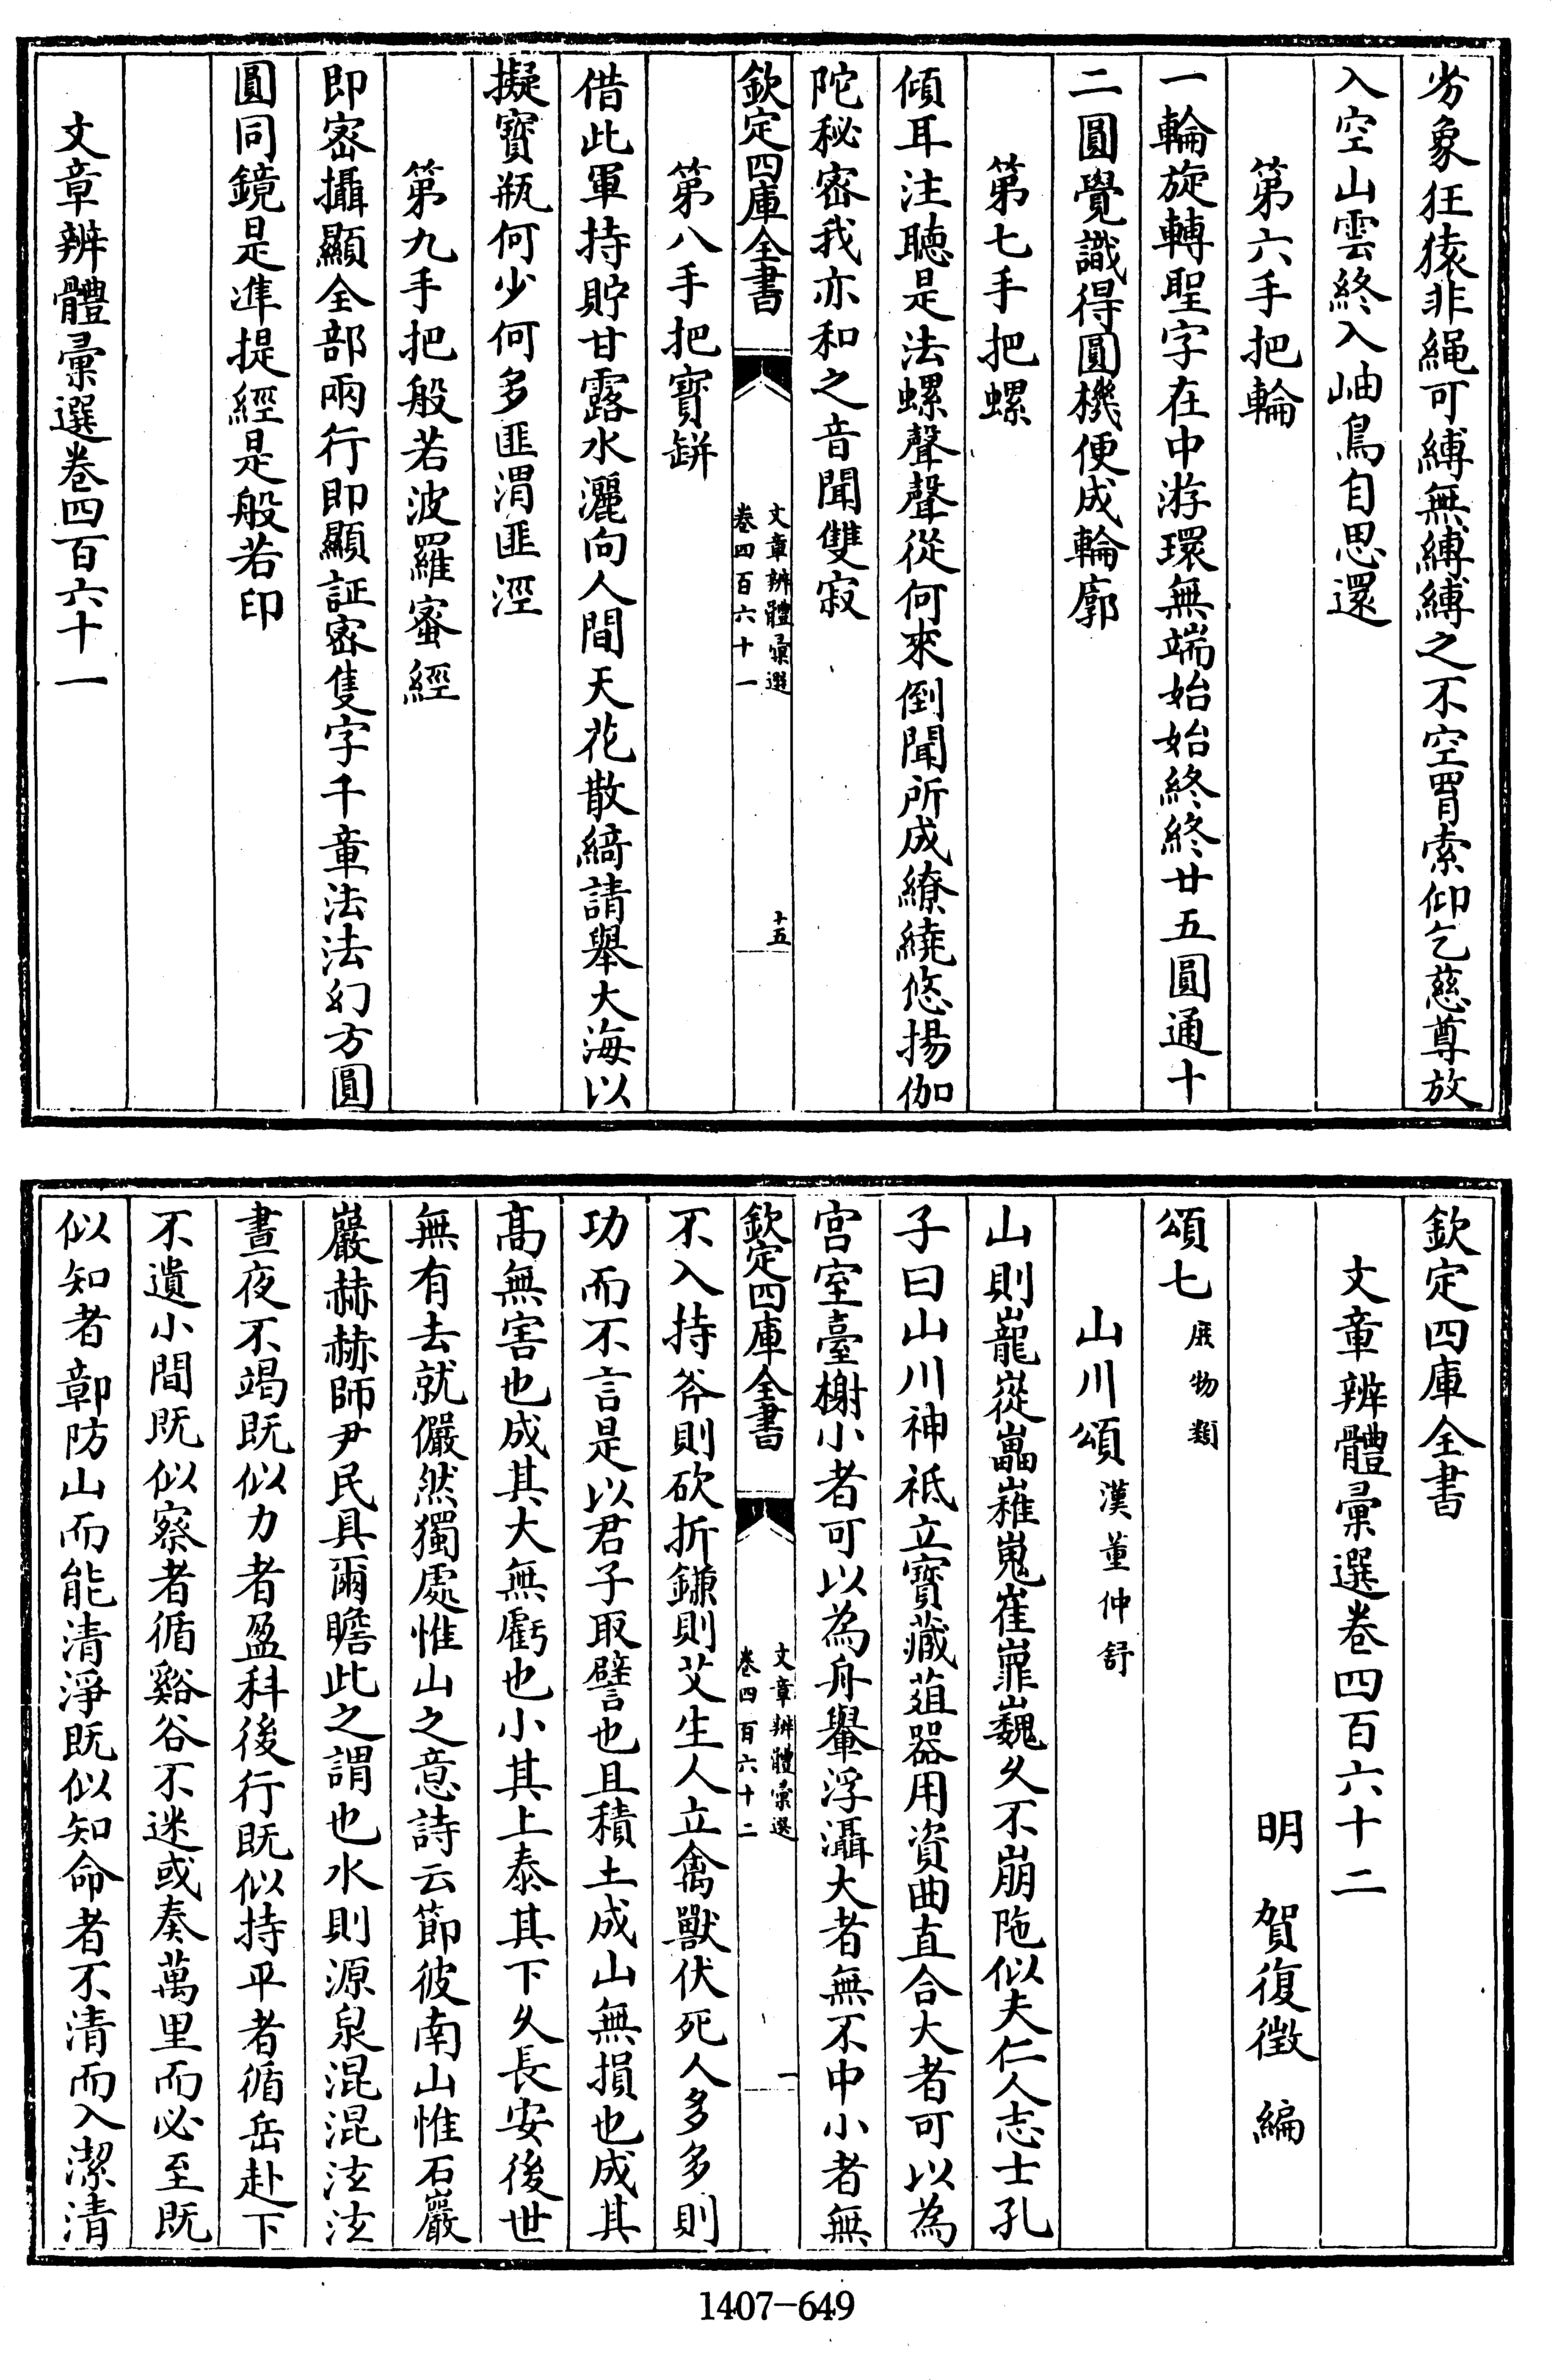 劣象狂猿非繩可縛無縛縛之不空罥索仰乞慈尊放
入空山雲終入岫鳥自思還
第六手把輪
一輪旋轉聖字在中游環無端始始終終廿五圓通十
二圓覺識得圓機便成輪廓
第七手把螺
傾耳注聽是法螺聲聲從何來倒聞所成繚繞悠揚伽
陀秘密我亦和之音聞雙寂
欽定四庫全書
文章辨體彙選
卷四百六十一
十五
第八手把寳缾
借此軍持貯甘露水灑向人間天花散綺請舉大海以
擬寳瓶何少何多匪渭匪涇
第九手把般若波羅蜜經
即密攝顯全部兩行即顯証密隻字千章法法幻方圓
圓同鏡是準提經是般若印
文章辨體彙選卷四百六十一
欽定四庫全書
文章辨體彙選卷四百六十二
明 賀復徵 編
頌七物類
山川頌漢董仲舒
山則巃嵸畾嶊嵬嶊嶵巍久不崩陁似夫仁人志士孔
子曰山川神祇立寳藏葅器用資曲直合大者可以為
宫室臺榭小者可以為舟轝浮灄大者無不中小者無
欽定四庫全書
文章辨體彙選
卷四百六十二
一
不入持斧則砍折鎌則艾生人立禽獸伏死人多多則
功而不言是以君子取譬也且積土成山無損也成其
髙無害也成其大無虧也小其上泰其下久長安後世
無有去就儼然獨處惟山之意詩云節彼南山惟石巖
巖赫赫師尹民具爾瞻此之謂也水則源泉混混泫泫
晝夜不竭既似力者盈科後行既似持平者循岳赴下
不遺小間既似察者循谿谷不迷或奏萬里而必至既
似知者鄣防山而能清淨既似知命者不清而入潔清
1407—649